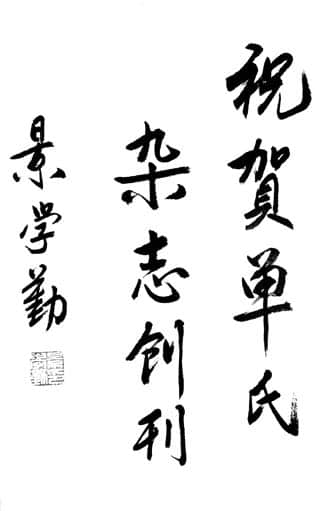 祝賀单氏
杂志创刊
景学勤